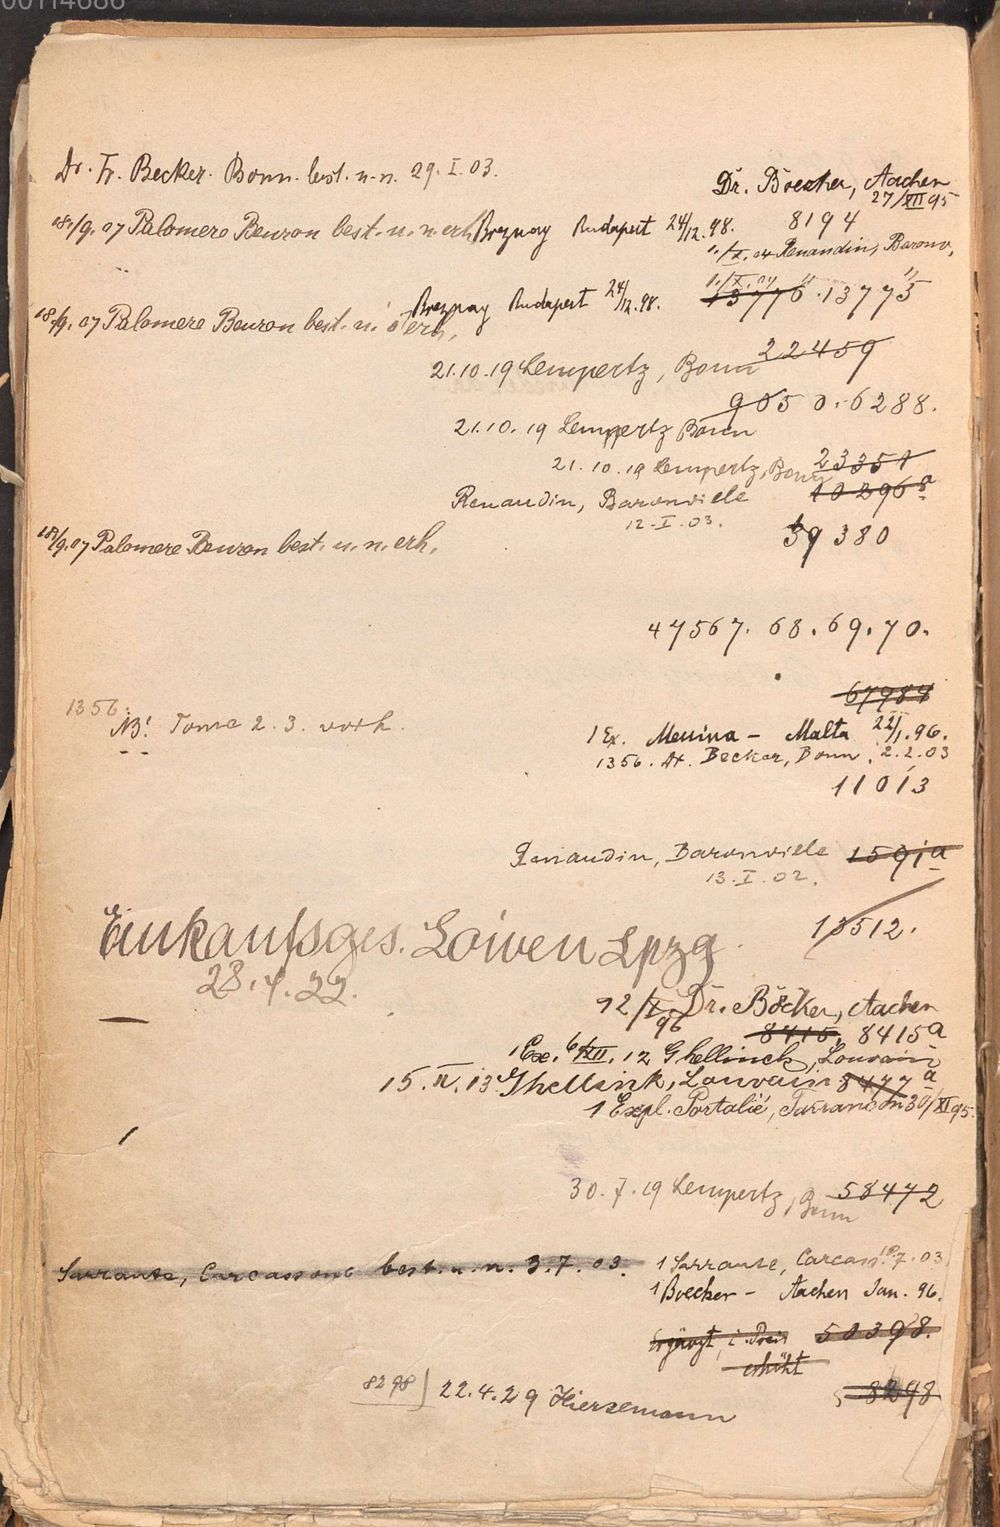 00114686
Dr. Fr. Becker. Bonn. best. u. n. 29. I. 03.
Dr. Boecker, Aachen
27/XII 95
18./9. 07 Palomere Beuzon best. u. n. erh. Breznay Budapest 24/12. 98. 8194
1./X. 04 Renaudin, Baronv,
1./X. 04 " "
18./9. 07 Palomere Beuzon best. u. n. erh. Breznay Budapest 24/12. 98. 13776. 13775
21.10.19 Lempertz, Bonn 22459
9050. 6288.
21.10.19 Lempertz Bonn
21.10.19 Lempertz, Bonn 23351
Renaudin, Baronville 10296a
12. I. 03.
18/9. 07 Palomere Beuzon best. u. n. erh. 39380
47567. 68. 69. 70.
67984
1356.
NB! Tome 2. 3. vorh.
1 Ex. Messina - Malta 22/1. 96.
1356. Dr. Becker, Bonn, 2.2.03
11013
Renaudin, Baronville 1591a
13. I. 02.
13512.
Einkaufsges. Löwen Lpzg.
28.4.22.
12/I. 96 Dr. Böcker, Aachen
8415. 8415a
1 Ex. 6/XII. 12 Ghellinck, Louvain
15. II. 13. Ghellink, Louvain 8477a
1 Expl. Portalié, 30/XI 95.
30.7.19 Lempertz, Bonn 58472
Sarraute, Carcassone best. u. n. 3.7.03. 1 Sarraute, Carcass. 10.7.03
1 Boecker - Aachen Jan. 96.
Ergänzt, i. Preis 50398.
erhöht
8298] 22.4.29 Hiersemann 8298